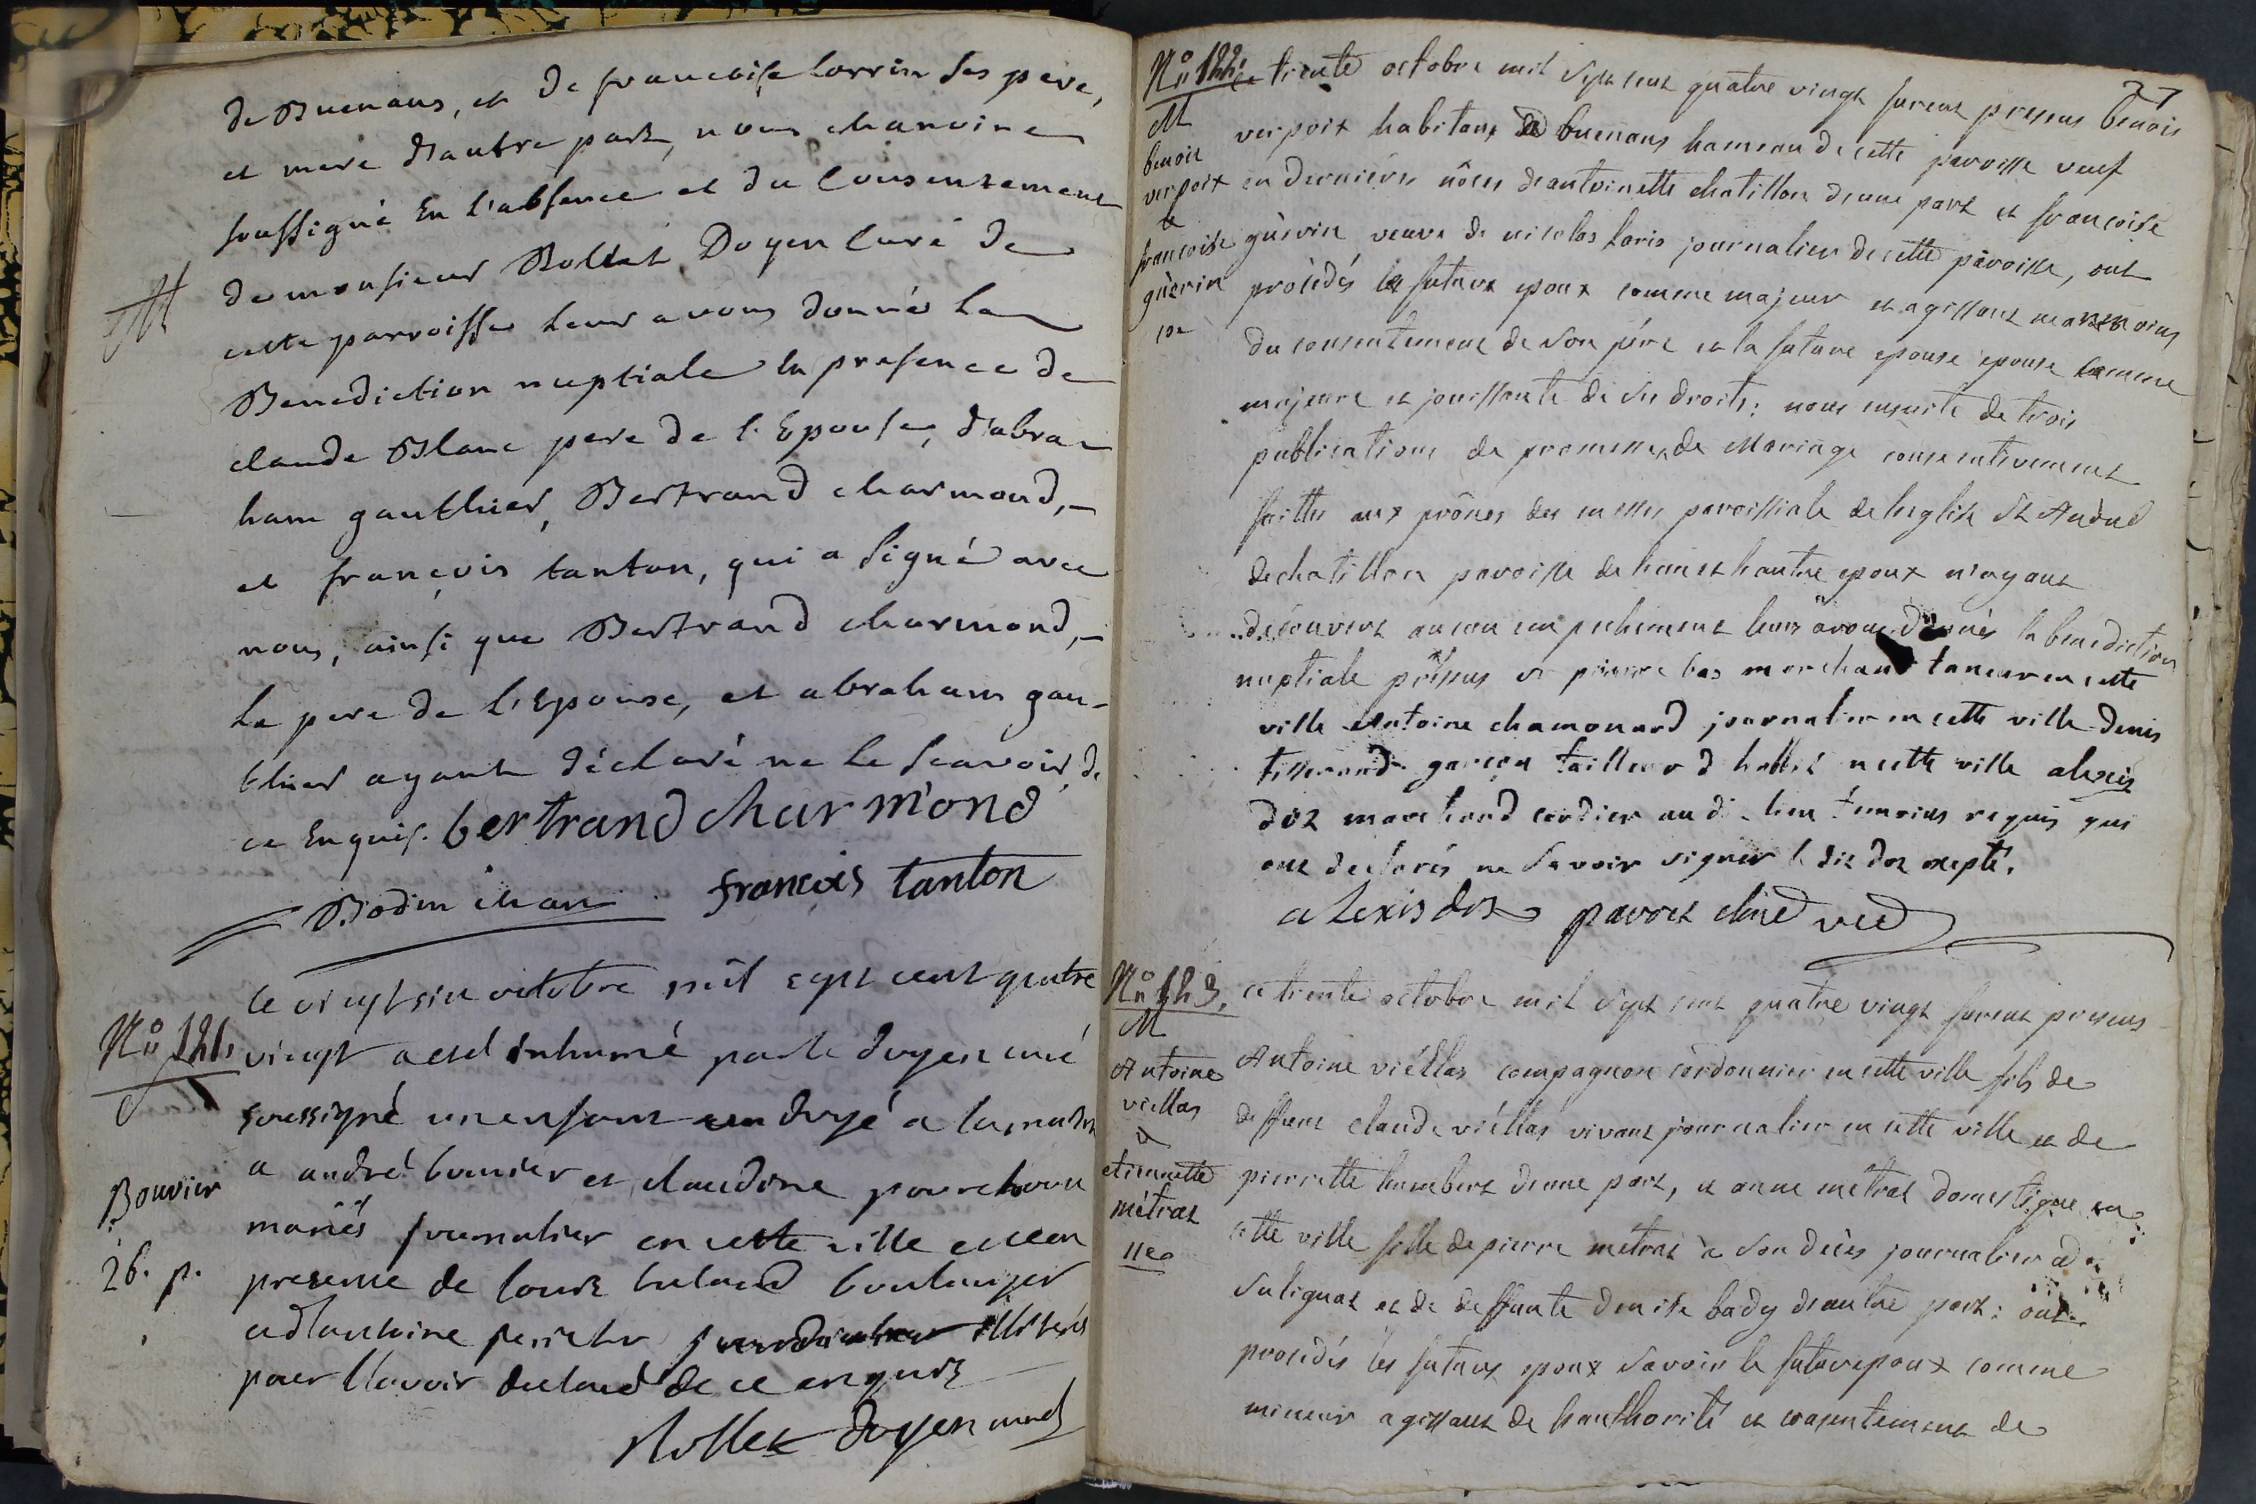 de Buenans, et de francoise lorrin ses pere,
et mere d'autre part, nous chanoine
soussigné En l'absence et du Consentement
de monsieur Rollet Doyen Curé de
cette parroisse leur avons donné la
Benediction nuptiale en presence de
claude Blanc pere de l'Epouse, d'abra-
ham gauthier, Bertrand charmond,
et françois tanton, qui a signé avec
nous, ainsi que Bertrand charmond,
le pere de l'Epouse, et abraham gau-
thier ayant déclaré ne le scavoir, de
ce Enquis. bertrand charmond
Bodin chan françois tanton
N° 121.
Bouvier
26. p.
le vingt six octobre mil sept cent quatre
vingt a eté inhumé par le doyen curé
soussigné un enfant ondoyé a la maison
a andré bouvier et claudine
mariés journalier en cette ville
presence de louis boulanger
et d'antoine illiterés
pour l'avoir declaré de ce enquis
Rollet doyen curé
77
N° 122.
M
benoit
verpoix
et
francoise
guèrin
ce trente octobre mil sept cent quatre vingt furent presens benoit
verpoix habitant de buenans hameau de cette paroisse veuf
en derniéres nôces d'antoinette chatillon d'une part et francoise
guèrin veuve de nicolas loris journalier de cette paroisse, ont
procèdés les futurs epoux comme majeur et agissant neanmoins
du consentement de son pére et la future epouse epouse comme
majeure et jouissante de ses droits: nous ensuite de trois
publications de promesses de Mariage consecutivement
faittes aux prônes des messes paroissiale de l'eglise St André
de chatillon paroisse de l'un et l'autre epoux n'ayant
découvert aucun empechement leurs avons donnés la benediction
nuptiale présens sr pierre bas marchand taneur en cette
ville antoine chamonard journalier en cette ville denis
tisserand garçon tailleur d'habit en cette ville alexis
doz marchand cordier au dit lieu temoins requis qui
ont declarés ne savoir signer le dit doz excepté.
alexis doz
N° 123.
M
Antoine
viellas
&
etiennette
métrat
ce trente octobre mil sept cent quatre vingt furent presens
Antoine viéllas compagnon cordonnier en cette ville fils de
deffunt claude viéllas vivant journalier en cette ville et de
pierrette humbert d'une part, et anne métrat domestique en
cette ville fille de pierre métrat à son décès journalier à
Sulignat et de deffunte denise bady d'autre part: ont
procédés les futurs epoux savoir le futur epoux comme
mineur agissant de l'authorité et consentement de